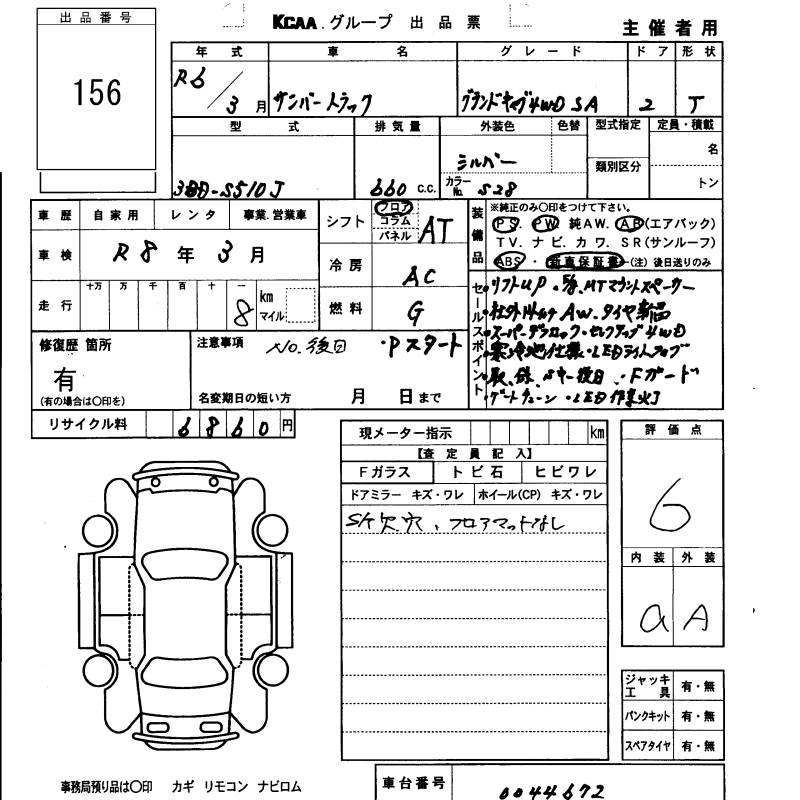 出品番号
156
KCAA グループ 出品票
主催者用
年式 車名 グレード ドア 形状
R6/3月 サンバートラック グランドキャブ4WD SA 2 T
型式 排気量 外装色 色替 型式指定 定員・積載
類別区分
名
トン
3BD-S510J 660 C.C. シルバー
カラーNo. S28
車歴 自家用 レンタ 事業.営業車
車検 R8年3月
走行 十万 万 千 百 十 一
8 km マイル
シフト フロア コラム パネル AT
冷房 AC
燃料 G
装備品
※純正のみ〇印をつけて下さい。
PS. PW. 純AW. AB(エアバック)
TV. ナビ. カワ. SR(サンルーフ)
ABS・新車保証書―(注) 後日送りのみ
セールスポイント
・リフトUP
・社外14インチAW.タイヤ新品
・スーパーデフロック・セレクティブ4WD
・寒冷地仕様・LEDライト
取、保、後日・Fガード
ゲートチェーン・LED作業灯
修復歴 箇所
有
(有の場合は〇印を)
注意事項 No.後日 ・Pスタート
名変期日の短い方 月 日まで
リサイクル料 6860円
現メーター指示 km
【査定員記入】
Fガラス トビ石 ヒビワレ
ドアミラー キズ・ワレ ホイール(CP) キズ・ワレ
S/K欠穴、フロアマットなし
評価点
6
内装 外装
a A
ジャッキ工具 有・無
パンクキット 有・無
スペアタイヤ 有・無
事務局預り品は〇印 カギ リモコン ナビロム
車台番号 0044672